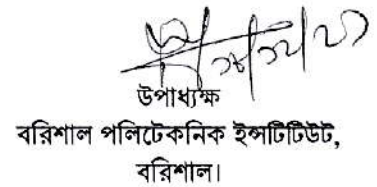 উপাধ্যক্ষ
বরিশাল পলিটেকনিক ইন্সটিটিউট,
বরিশাল।